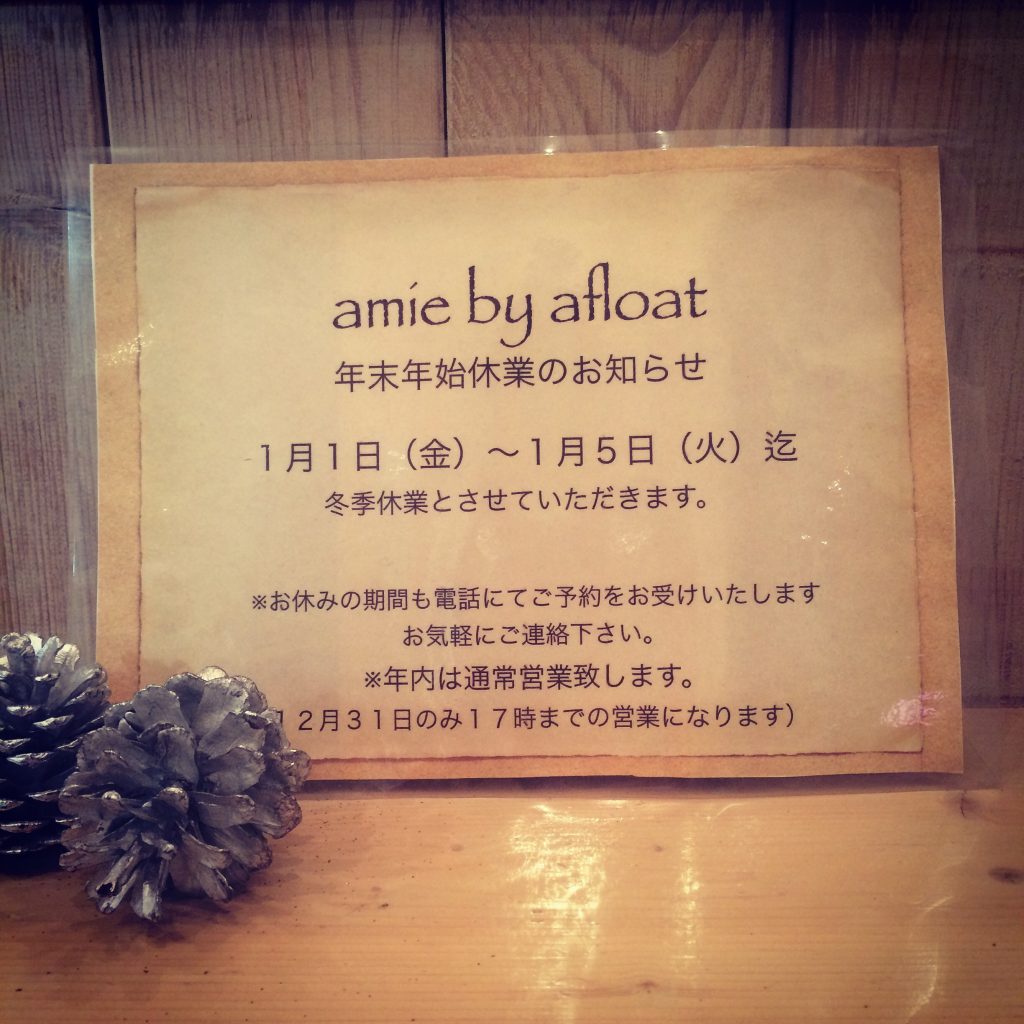 amie by afloat
年末年始休業のお知らせ
１月１日（金）〜１月５日（火）迄
冬季休業とさせていただきます。
※お休みの期間も電話にてご予約をお受けいたします
お気軽にご連絡下さい。
※年内は通常営業致します。
１２月３１日のみ１７時までの営業になります）